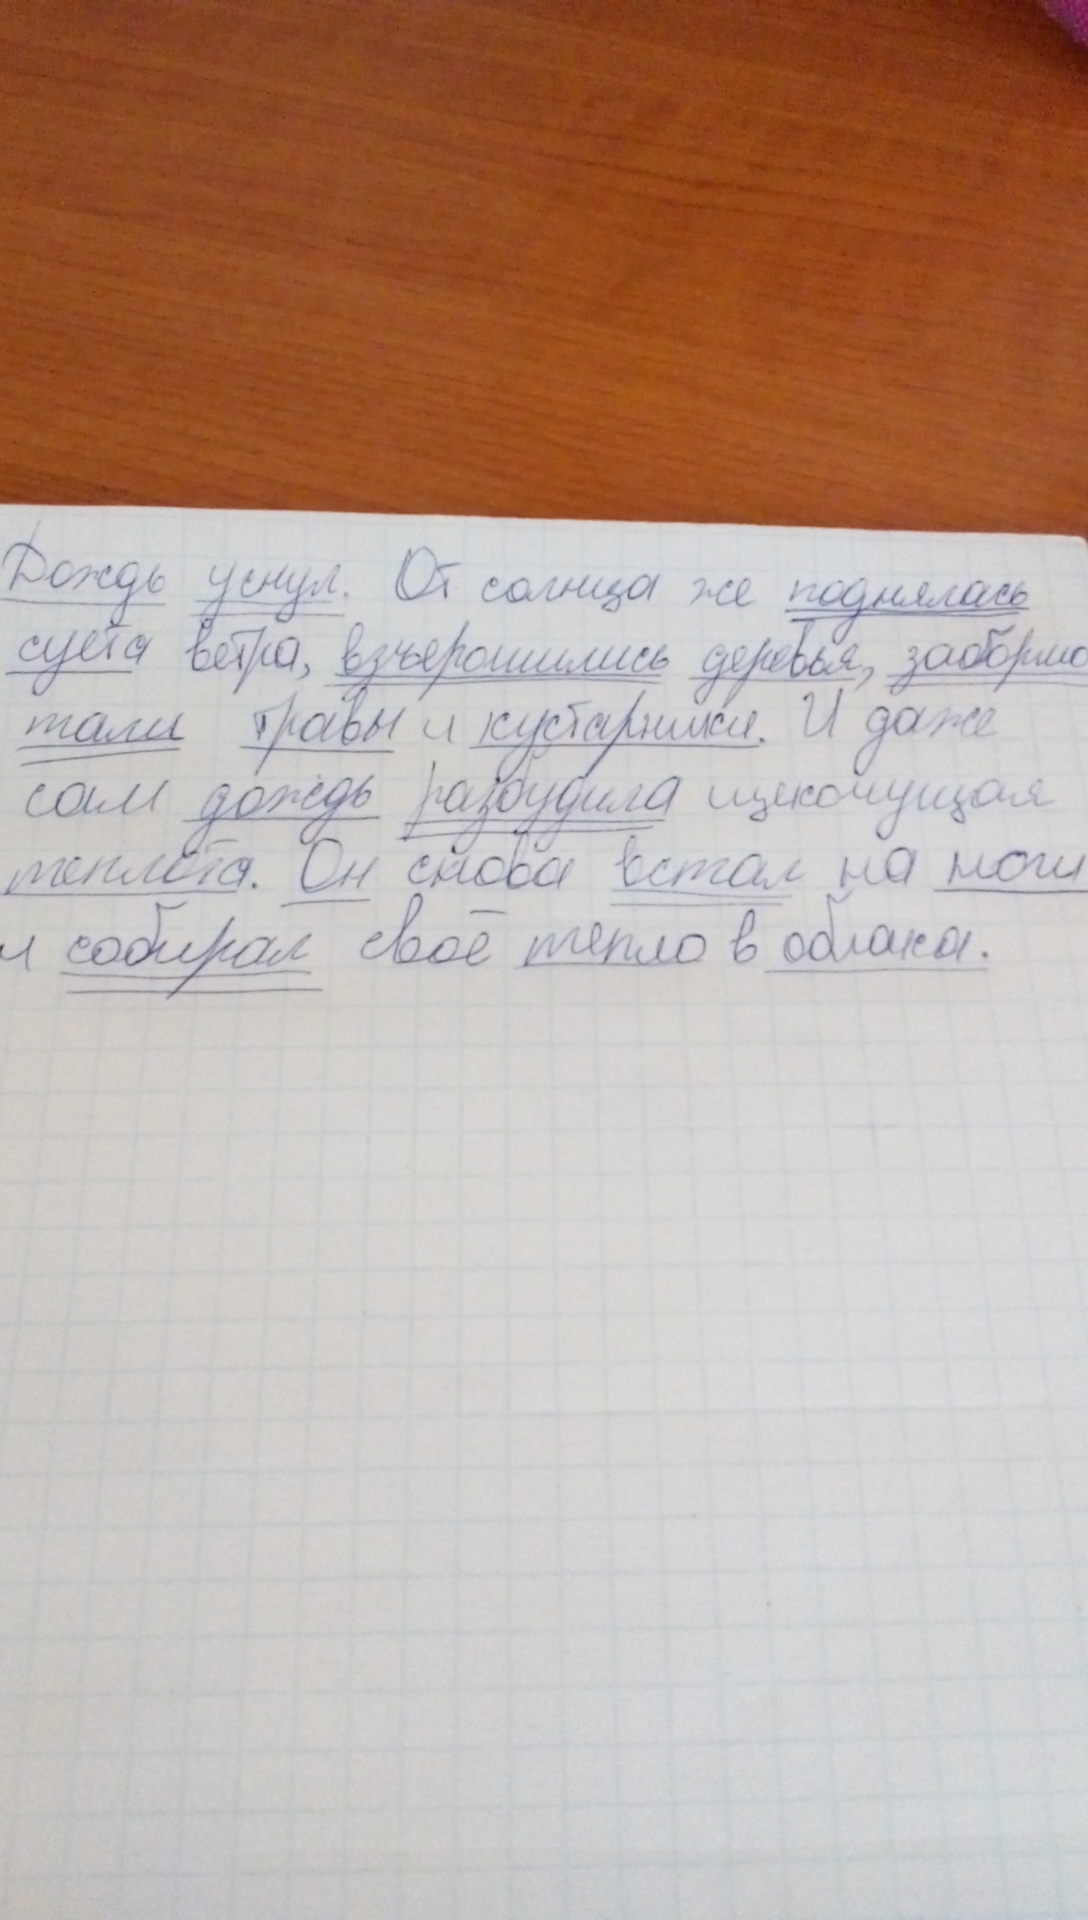 Дождь уснул. От солнца же поднялась
суета ветра, взъерошились деревья, забормо
тали травы и кустарники. И даже
сам дождь разбудила щекочущая
теплота. Он снова встал на ноги
и собирал своё тепло в облака.